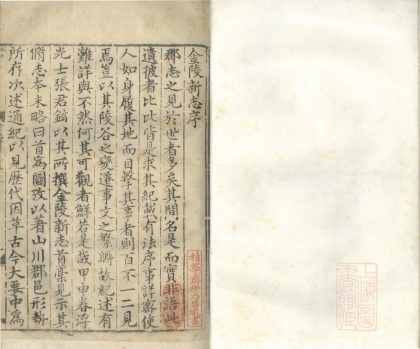 金陵新志序
郡志之見於世者多矣其間名是而實非語此
遺彼者比比皆是求其紀載有法序事詳審使
人如身履其地而目擊其事者則百不一二見
焉豈以其陵谷之變遷事文之繁縟故紀述有
難詳與不然何其可觀者鮮若是哉甲申春浮
光士張君鉉以其所撰金陵新志首稾見示其
脩志本末略曰首為圖攷以著山川郡邑形勢
所存次述通紀以見歴代因革古今大要中為